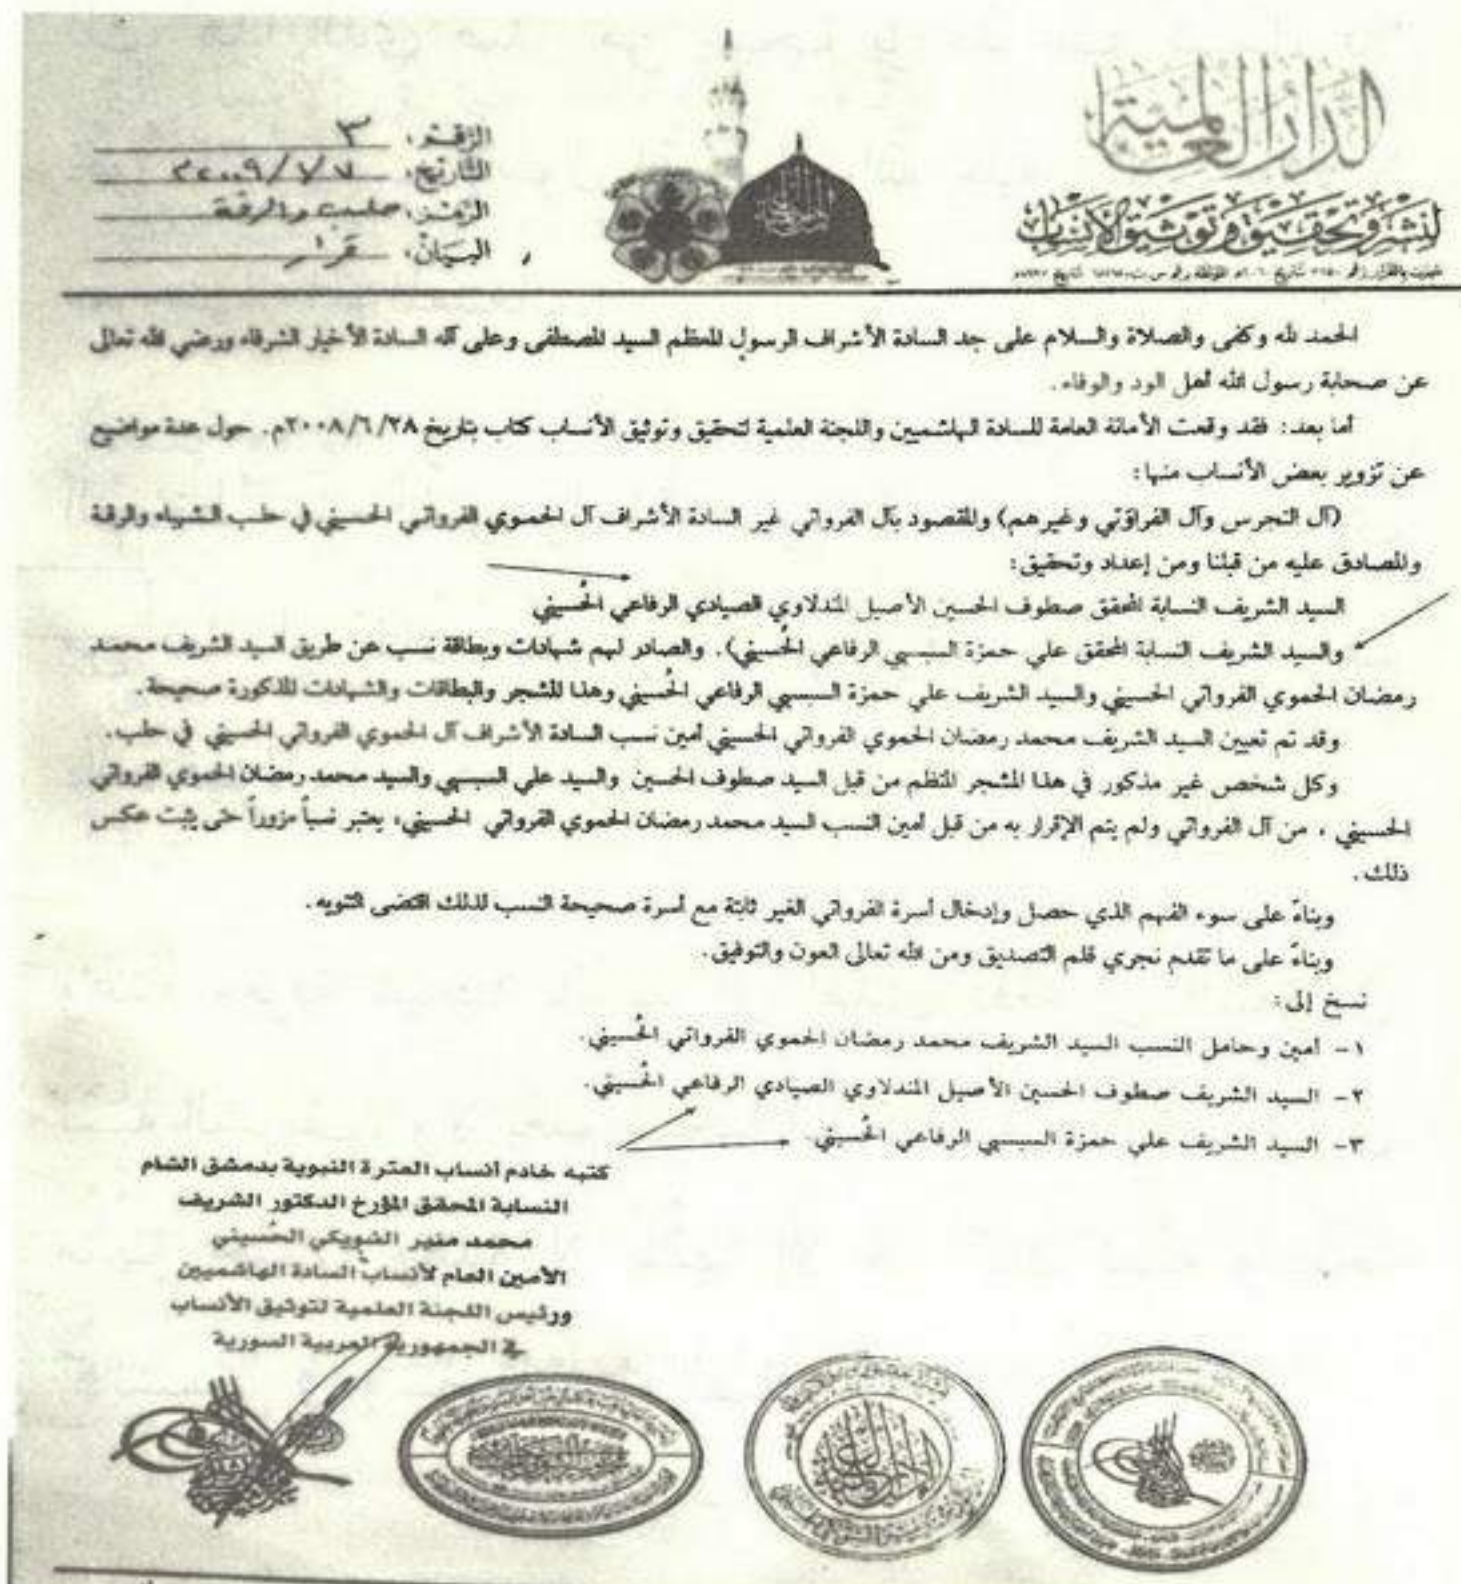 الدار العالمية
لنشر وتحقيق وتوثيق الأنساب
الرقم: ٣
التاريخ: ٢٠٠٩/٧/٧م
الرمز: حلب والرقة
البيان: قرار
الحمد لله وكفى والصلاة والسلام على جد السادة الأشراف الرسول المعظم السيد المصطفى وعلى آله السادة الأخيار الشرفاء ورضي الله تعالى
عن صحابة رسول الله أهل الود والوفاء.
أما بعد: فقد وقعت الأمانة العامة للسادة الهاشميين واللجنة العلمية لتحقيق وتوثيق الأنساب كتاب بتاريخ ٢٠٠٨/٦/٢٨م. حول عدة مواضيع
عن تزوير بعض الأنساب منها:
(آل النجرس وآل الفراؤتي وغيرهم) والمقصود بآل الفرواتي غير السادة الأشراف آل الحموي الفرواتي الحسيني في حلب الشهباء والرقة
والمصادق عليه من قبلنا ومن إعداد وتحقيق:
السيد الشريف النسابة المحقق صطوف الحسين الأصيل المندلاوي الصيادي الرفاعي الحُسيني
والسيد الشريف النسابة المحقق علي حمزة السبسبي الرفاعي الحُسيني). والصادر لهم شهادات وبطاقة نسب عن طريق السيد الشريف محمد
رمضان الحموي الفرواتي الحسيني والسيد الشريف علي حمزة السبسبي الرفاعي الحُسيني وهذا المشجر والبطاقات والشهادات المذكورة صحيحة.
وقد تم تعيين السيد الشريف محمد رمضان الحموي الفرواتي الحسيني أمين نسب السادة الأشراف آل الحموي الفرواتي الحسيني في حلب.
وكل شخص غير مذكور في هذا المشجر المنظم من قبل السيد صطوف الحسين والسيد علي السبسبي والسيد محمد رمضان الحموي الفرواتي
الحسيني ، من آل الفرواتي ولم يتم الإقرار به من قبل أمين النسب السيد محمد رمضان الحموي الفرواتي الحسيني، يعتبر نسباً مزوراً حتى يثبت عكس
ذلك.
وبناءً على سوء الفهم الذي حصل وإدخال أسرة الفرواتي الغير ثابتة مع أسرة صحيحة النسب لذلك اقتضى التنويه.
وبناءً على ما تقدم نجري قلم التصديق ومن الله تعالى العون والتوفيق.
نسخ إلى:
١- أمين وحامل النسب السيد الشريف محمد رمضان الحموي الفرواتي الحُسيني.
٢- السيد الشريف صطوف الحسين الأصيل المندلاوي الصيادي الرفاعي الحُسيني.
٣- السيد الشريف علي حمزة السبسبي الرفاعي الحُسيني.
كتبه خادم أنساب العترة النبوية بدمشق الشام
النسابة المحقق المؤرخ الدكتور الشريف
محمد منير الشويكي الحُسيني
الأمين العام لأنساب السادة الهاشميين
ورئيس اللجنة العلمية لتوثيق الأنساب
في الجمهورية العربية السورية